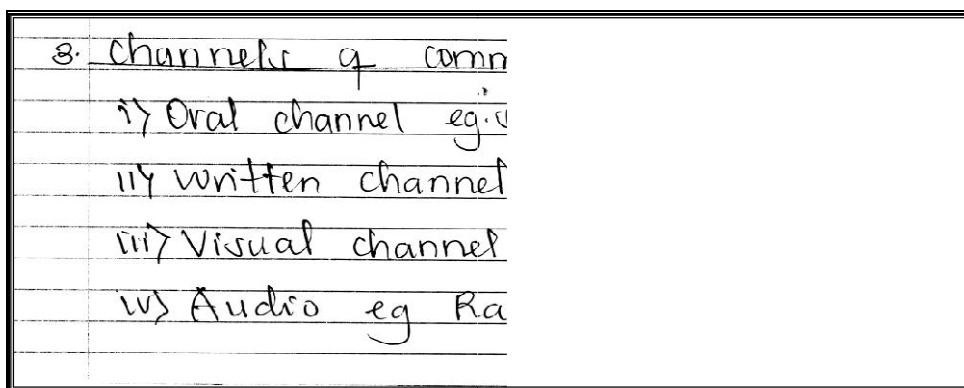 3. Channels of comm
i) Oral channel eg.
ii) Written channel
iii) Visual channel
iv) Audio eg Ra